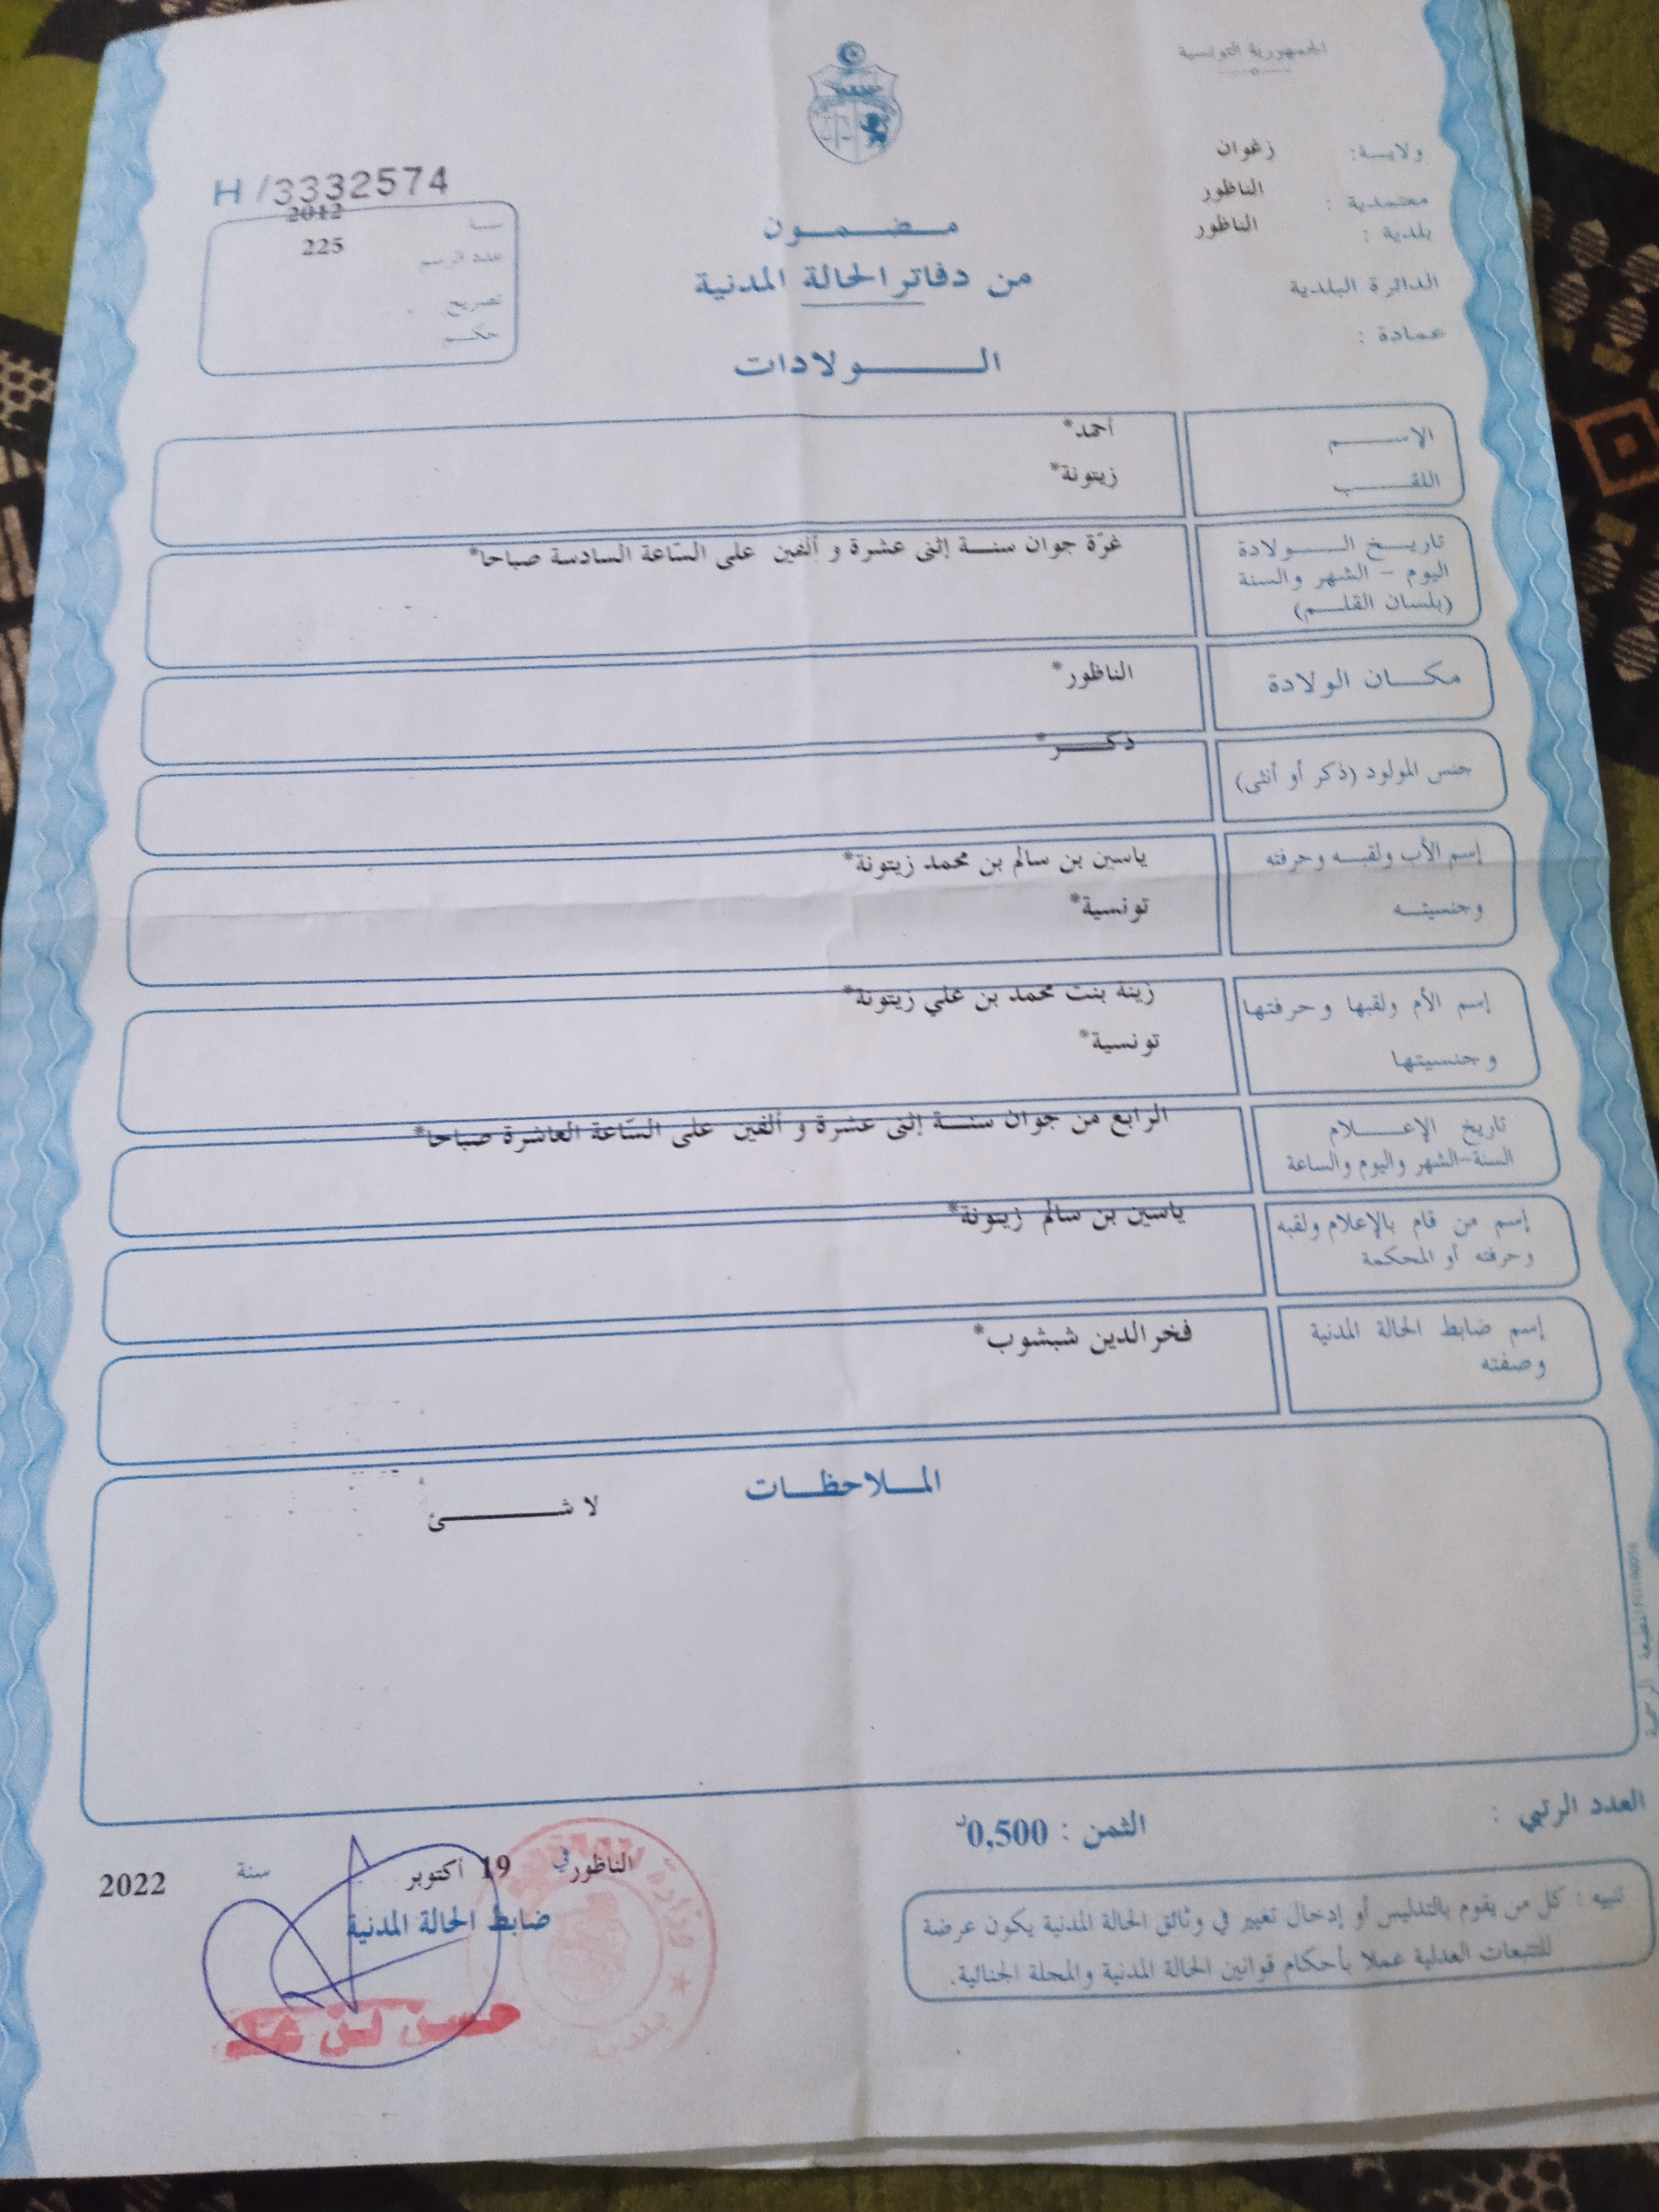 الجمهورية التونسية
ولاية: زغوان
معتمدية : الناظور
بلدية : الناظور
الدائرة البلدية
عمادة :
H /3332574
سنة 2012
عدد الرسم 225
تصريح
حكم
مضمون
من دفاتر الحالة المدنية
الولادات
الإسم أحمد*
اللقب زيتونة*
تاريخ الولادة غرّة جوان سنة إثنى عشرة و ألفين على السّاعة السادسة صباحا*
اليوم - الشهر والسنة
(بلسان القلم)
مكان الولادة الناظور*
جنس المولود (ذكر أو أنثى) ذكر*
إسم الأب ولقبه وحرفته ياسين بن سالم بن محمد زيتونة*
وجنسيته تونسية*
إسم الأم ولقبها وحرفتها زينه بنت محمد بن علي زيتونة*
وجنسيتها تونسية*
تاريخ الإعلام الرابع من جوان سنة إثنى عشرة و ألفين على السّاعة العاشرة صباحا*
السنة-الشهر واليوم والساعة
إسم من قام بالإعلام ولقبه ياسين بن سالم زيتونة*
وحرفته أو المحكمة
إسم ضابط الحالة المدنية فخر الدين شبشوب*
وصفته
الملاحظات
لا شئ
العدد الرتبي :
الثمن : 0,500د
الناظور في 19 أكتوبر سنة 2022
ضابط الحالة المدنية
تنبيه : كل من يقوم بالتدليس أو إدخال تغيير في وثائق الحالة المدنية يكون عرضة
للتتبعات العدلية عملا بأحكام قوانين الحالة المدنية والمجلة الجنائية.